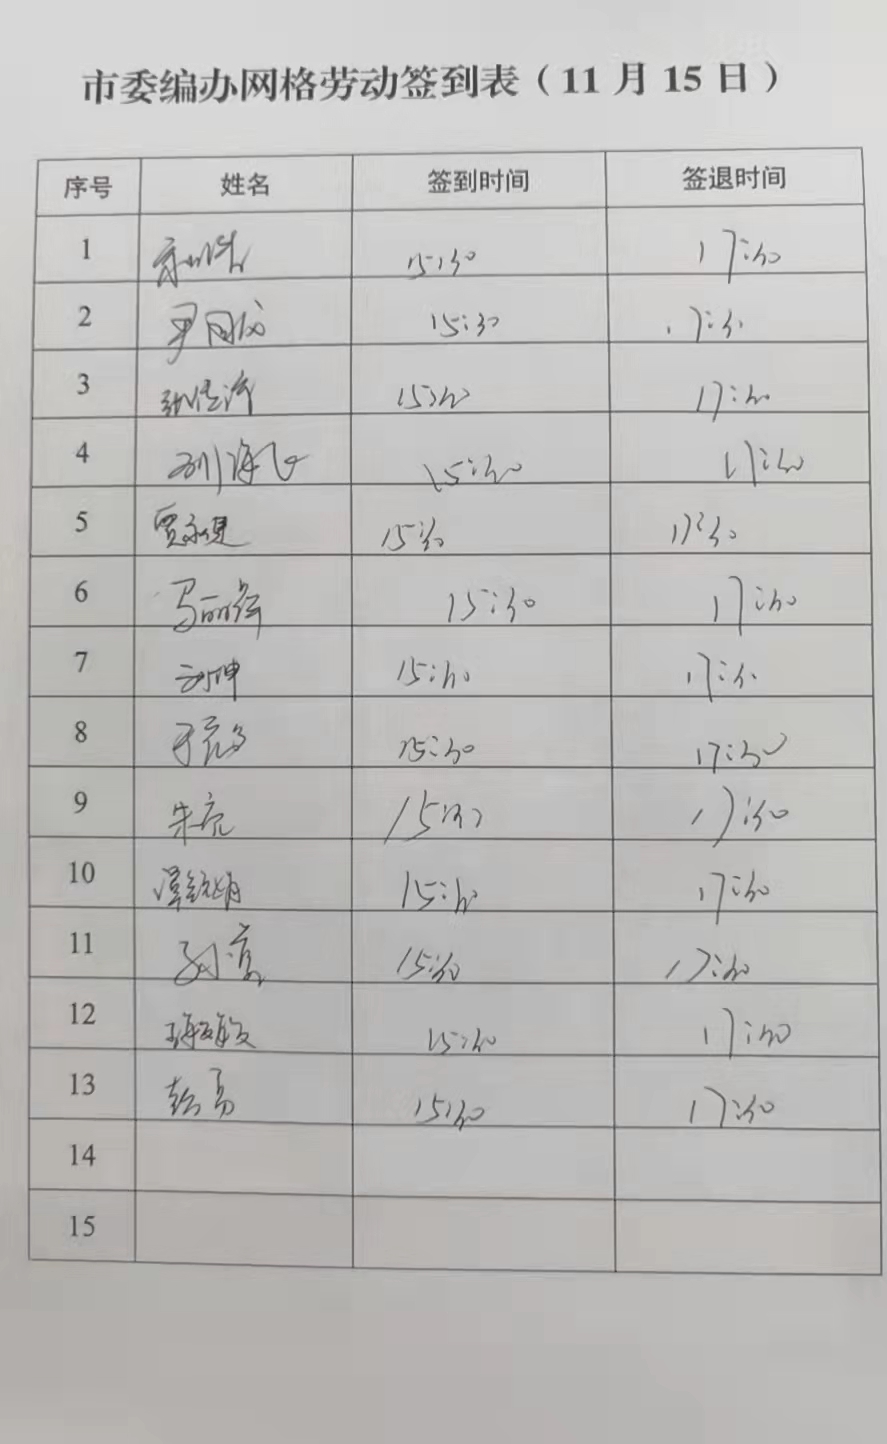 市委编办网格劳动签到表（11月15日）
序号 姓名 签到时间 签退时间
1 15:30 17:30
2 15:30 17:30
3 15:30 17:30
4 15:30 17:30
5 贾永健 15:30 17:30
6 马丽莉 15:30 17:30
7 刘坤 15:30 17:30
8 15:30 17:30
9 朱亮 15:30 17:30
10 15:30 17:30
11 15:30 17:30
12 15:30 17:30
13 彭勇 15:30 17:30
14
15